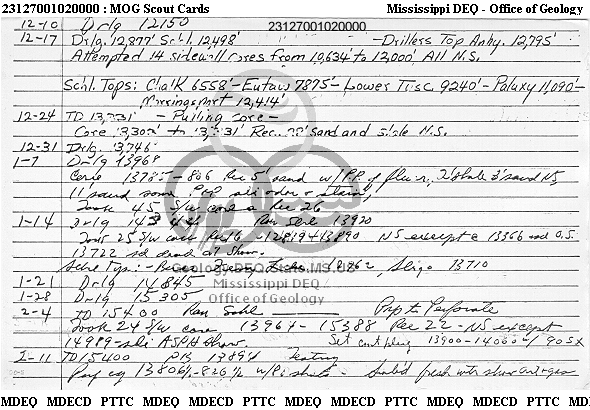 23127001020000 : MOG Scout Cards Mississippi DEQ - Office of Geology
12-10 Drlg 12150 23127001020000
12-17 Drlg. 12,877' Schl. 12,498' - Drillers Top Anhy. 12,795'
Attempted 14 sidewall cores from 10,634' to 12,000' All N.S.
Schl. Tops: Chalk 6558' - Eutaw 7875' - Lower Tusc. 9240' - Paluxy 11,090' -
Mooringsport 12,414'
12-24 TD - Pulling core -
Core to Rec. sand and shale N.S.
12-31 Drlg. 13,746'
1-7 Drlg 13968
Core 13785-806 Rec 5' sand w/ 2' shale 3' sand NS,
11' sand odor & stain,
Took 45 S/W cores Rec 26
1-14 Drlg Ran Schl 13920
Took 25 S/W cores 13890 NS except @ 13366 sd O.S.
13722 sd dead oil show.
Schl Tops: - Sligo 13710
Geology DEQ State MS US
1-21 Drlg 14845
Mississippi DEQ
1-28 Drlg 15305
Office of Geology
2-4 TD 15400 Ran Schl Prep to Perforate
Took 24 S/W core 13964 - 15388 Rec 22 - NS except
14989 show. Set cmt plug 13900-14000 w/ 90 SX
2-11 TD 15400 PB 13894 Testing
Perf w/ shots - fresh wtr show
MDEQ MDECD PTTC MDEQ MDECD PTTC MDEQ MDECD PTTC MDEQ MDECD PTTC